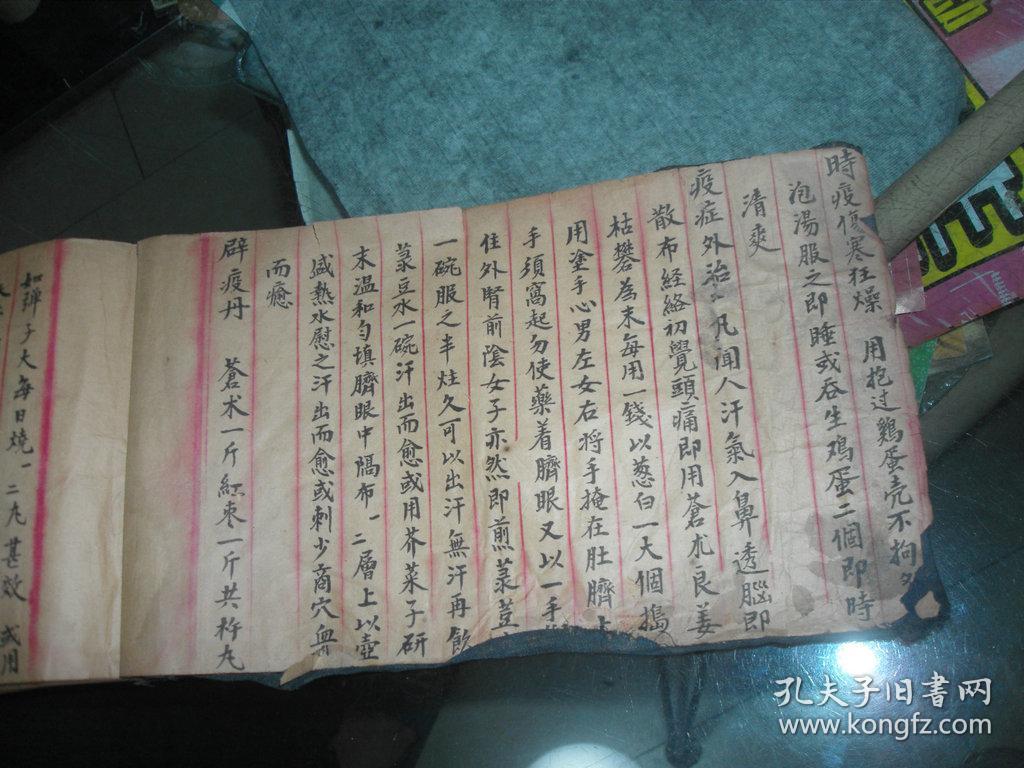 時疫傷寒狂燥 用抱过鷄蛋壳不拘
泡湯服之即睡或吞生鸡蛋二個即時
清爽
疫症外治 凡聞人汗氣入鼻透腦即
散布経絡初覺頭痛即用蒼朮良姜
枯礬為末每用一錢以葱白一大個搗
用塗手心男左女右将手掩在肚臍
手須窩起勿使藥着臍眼又以一手
住外腎前陰女子亦然即煎菉荳
一碗服之半炷久可以出汗無汗再飲
菉豆水一碗汗出而愈或用芥菜子研
末温和勻填臍眼中隔布一二層上以壺
盛熱水慰之汗出而愈或刺少商穴血
而癒
辟疫丹 蒼术一斤紅枣一斤共杵丸
如弹子大每日燒一二丸甚效 或用
孔夫子旧書网
www.kongfz.com